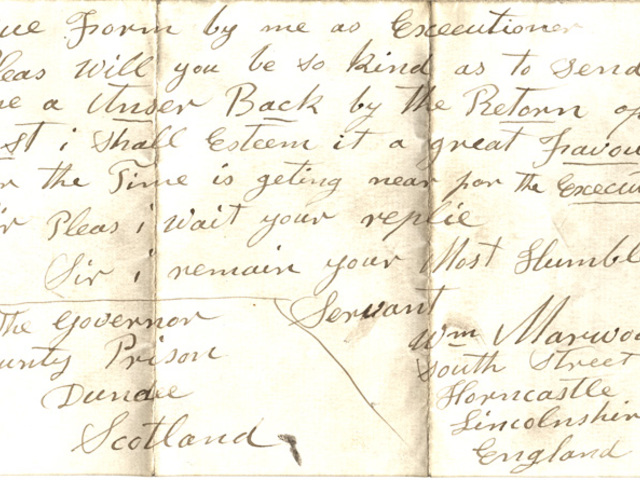 ue Form by me as Executioner
Pleas Will you be so Kind as to Send
me a Unser Back by the Return of
st i Shall Esteem it a great Favou
r the Time is geting near for the Execu
ir Pleas i wait your replie
Sir i remain your Most Humbl
Servant
The Governor
unty Prison
Dundee
Scotland
Wm Marwoo
South Street
Horncastle
Lincolnshir
England